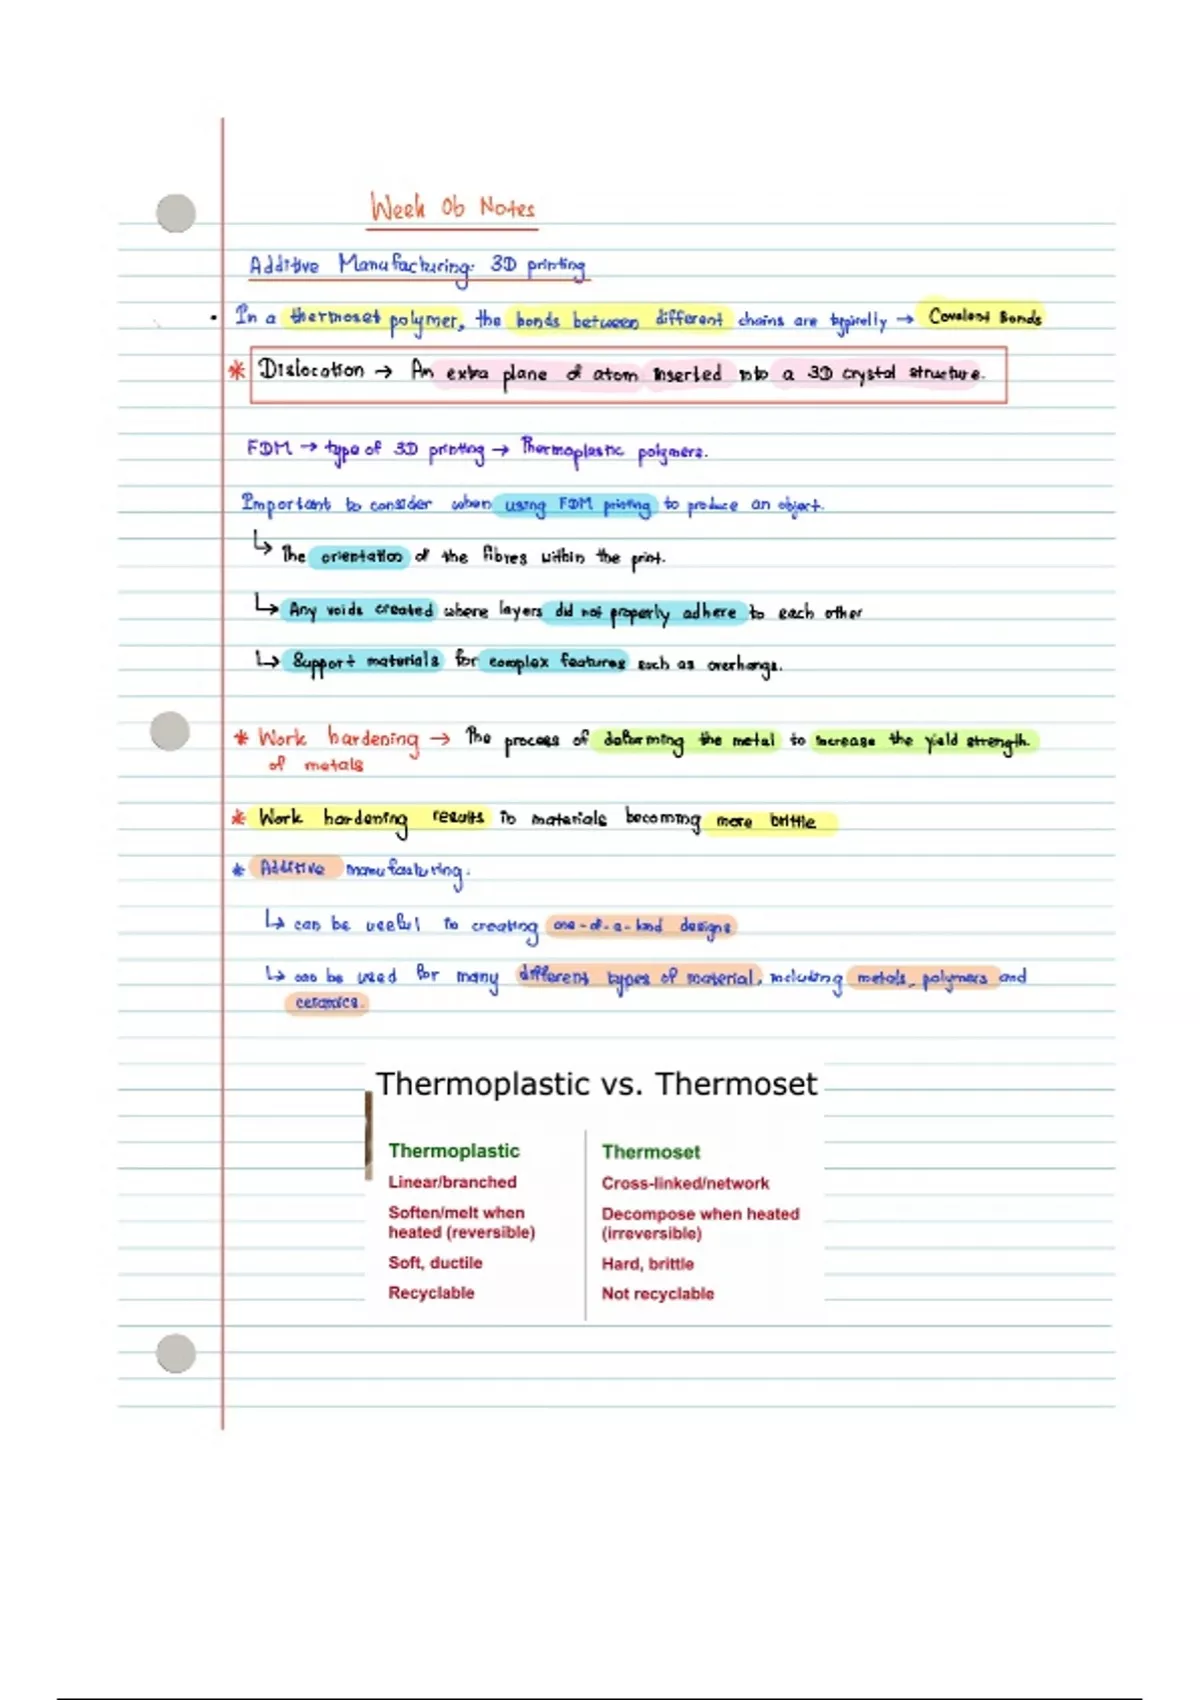 Week 06 Notes
Additive Manufacturing: 3D printing
• In a thermoset polymer, the bonds between different chains are typically → Covalent Bonds
* Dislocation → An extra plane of atom inserted into a 3D crystal structure.
FDM → type of 3D printing → Thermoplastic polymers.
Important to consider when using FDM printing to produce an object.
↳ The orientation of the fibres within the print.
↳ Any voids created where layers did not properly adhere to each other
↳ Support materials for complex features such as overhangs.
* Work hardening → The process of deforming the metal to increase the yield strength.
of metals
* Work hardening results in materials becoming more brittle
* Additive manufacturing.
↳ can be useful in creating one-of-a-kind designs
↳ can be used for many different types of material, including metals, polymers and
ceramics.
Thermoplastic vs. Thermoset
Thermoplastic
Linear/branched
Soften/melt when
heated (reversible)
Soft, ductile
Recyclable
Thermoset
Cross-linked/network
Decompose when heated
(irreversible)
Hard, brittle
Not recyclable